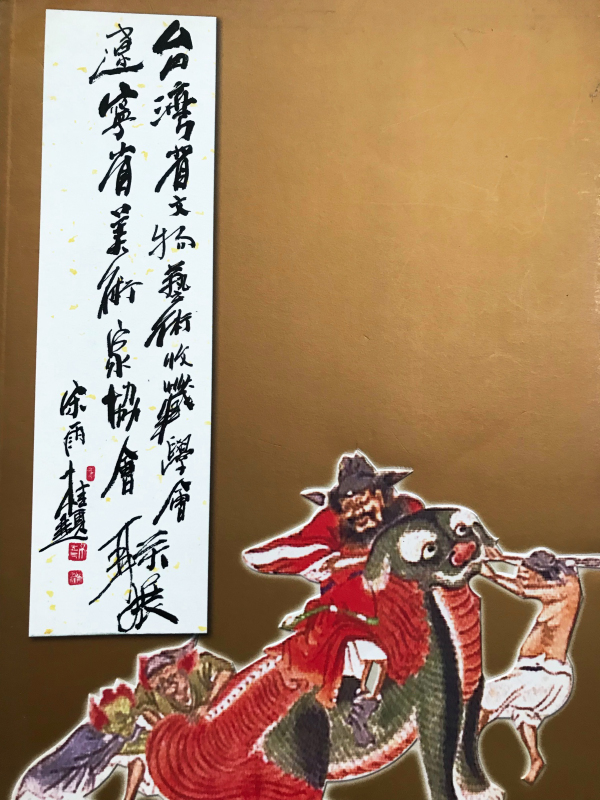 台灣省文物藝術收藏學會
遼寧省美術家協會
聯展
宋雨桂題